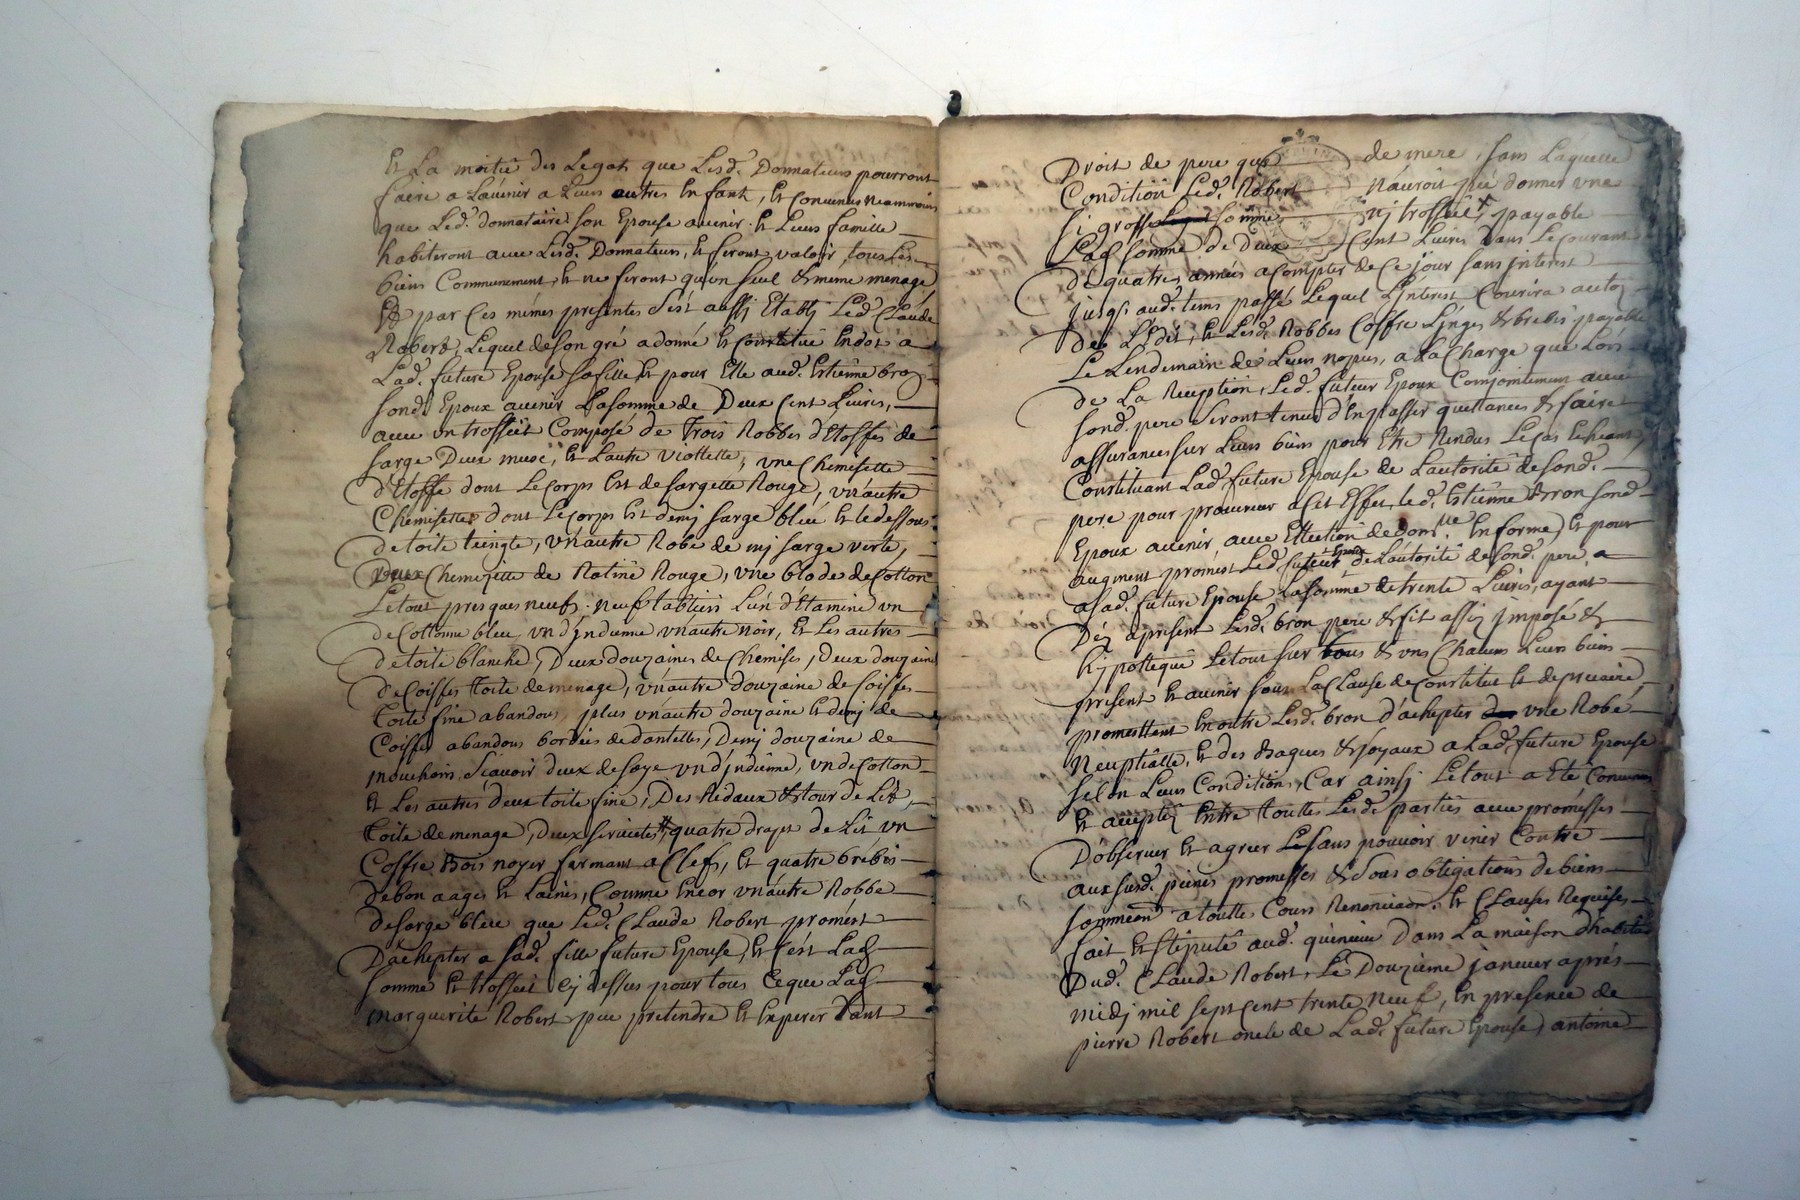 Et La moitié des Legats que Lesd. Donnateurs pourront
faire a Lavenir a Leurs autres Enfant, Et Convenus neammoins
que Led. donnataire son Epouse avenir Et Leurs famille
habiteront avec Lesd. Donnateurs, Et feront valoir tous Les
biens Communement, Et ne feront qu'un seul & meme menage
Et par Ces mémes presentes s'est aussj Etablj Led. Claude
Robert, Lequel de son gré a donné Et Constitué En dot a
Lad. future Epouse sa fille Et pour Elle aud. Estienne bron
sond. Epoux avenir La somme de Deux Cent Livres,
avec un trossëit Composé de Trois Robbes d'Etoffes de
sarge Deux muse, Et Lautre viollette, une Chemisette
d'Etoffe dont Le Corps Est de sargette Rouge, un autre
Chemisettes dont Le Corps Est demj sarge bleüe Et le dessous
de toile teingte, un autre Robe de mj sarge verte,
Chemizette de Ratine Rouge, une blode de Cotton
Le tout presques neufs, neuf tabliers L'un d'Etamine un
de Cottonne bleu, un d'jndienne un autre noir, Et Les autres
de toile blanche, Deux douzaines de Chemises, Deux douzaine
de Coiffes toile de menage, un autre douzaine de Coiffes
toile fine abandons, plus un autre douzaine Et demj de
Coiffes abandons bordées de dantelles, Demj douzaine de
mouchoirs, sçavoir deux de soye un d'jndienne, un de Cotton
Et Les autres deux toile fine, Des Ridaux & tour de Lit,
toile de menage, Deux serviettes, quatre draps de Lit un
Coffre Bois noyer fermant a Clefs, Et quatre brébis
de bon aages Et Laines, Comme Encor un autre Robbe
de sarge bleüe que Led. Claude Robert promèst
D'achepter a sad. fille future Epouse, Et C'est Lad.
somme Et trosseit Cj dessus pour tous Ce que Lad.
marguerite Robert peu pretendre Et Experer Tant
Droit de pere que de mere, sans Laquelle
Condition Led. Robert N'auroit peü donner une
si grosse somme nj trosseit, payable
Lad. somme de Deux Cent Livres Dans Le Courant
de quatre années a Compter de Ce jour sans jnterest
jusqs. aud. tems passé Lequel L'jnterest Courira au toz
de L'Edit, Et Lesd. Robbes Coffre Linges & brebis payable
Le Lendemain de Leurs nopces, a La Charge que Lors
de La Reception, Led. futeur Epoux Conjointement avec
sond. pere seront tenus d'En passer quittances & faire
assurances sur Leurs biens pour Etre Rendus Le Cas Echeant,
Constituant Lad. future Epouse de Lautorité de sond.
pere pour procureur a Cet Effet, led. Estienne Bron sond.
Epoux avenir avec Ellection de dom.lle En forme, Et pour
augment promest Led. futeur Epoux de Lautorité de sond. pere a
a sad. future Epouse La somme de trente Livres, ayant
Déz apresent Lesd. bron pere & fit assiz jmposé &
hjpottequé Le tout sur tous & uns Chacuns Leurs biens
present Et avenir sous La Clause de Constitut Et de precaire,
promettent En outre Lesd. bron d'achepter une Robé
Neuptialle, Et des Bagues & Joyaux a Lad. future Epouse
selon Leurs Condition, Car ainsj Le tout a Eté Convenus
Et acceptéz Entre touttes Lesd. parties avec promesses
D'observer Et agreer Le sans pouvoir venir Contre
aux susd. peines promesses & sous obligations de biens
a toutte Cours Renonciaõn. Et Clauses Requises
fait Et stipulé aud. Dans La maison d'habitaõn
Dud. Claude Robert, Le Douzieme janvier aprés
midj mil sept Cent trente neuf, En présence de
pierre Robert oncle de Lad. future Epouse, antoine